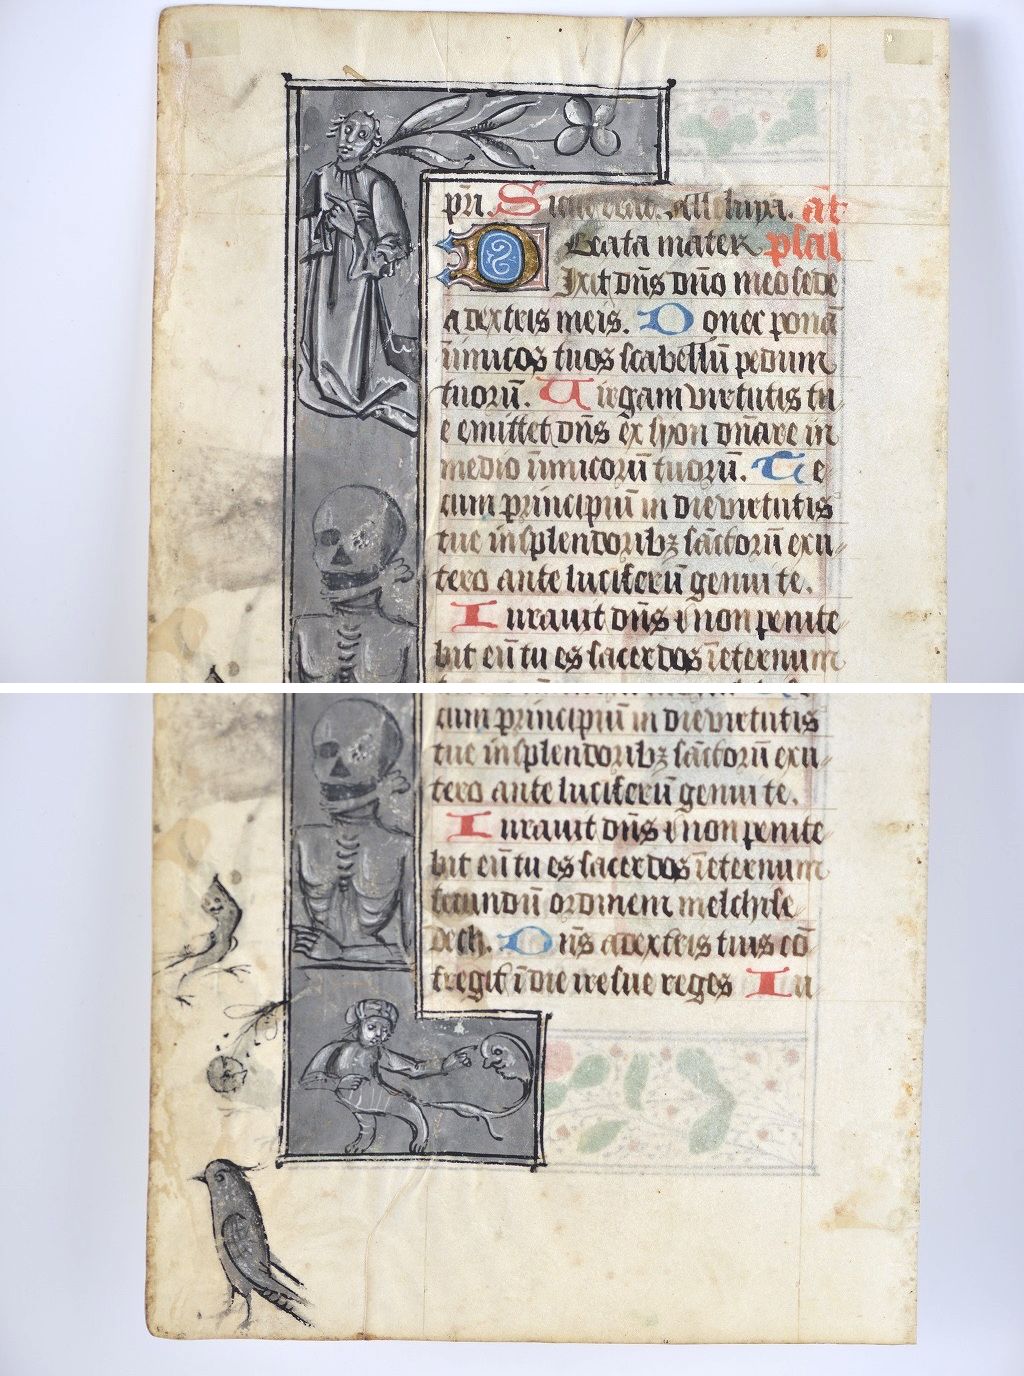 pri. Sicut erat. Alleluya. añ
Beata mater psal
Dixit dn̄s dn̄o meo sede
a dextris meis. Donec ponā
īimicos tuos scabellū pedum
tuorū. Uirgam virtutis tu
e emittet dn̄s ex syon dn̄are in
medio īimicorū tuorū. Te
cum principiū in die virtutis
tue in splendoribꝫ sāctorū ex u
tero ante luciferū genui te.
Iurauit dn̄s ⁊ non penite
bit eū tu es sacerdos ī eternum
cum principiū in die virtutis
tue in splendoribꝫ sāctorū ex u
tero ante luciferū genui te.
Iurauit dn̄s ⁊ non penite
bit eū tu es sacerdos ī eternum
secundū ordinem melchise
dech. Dn̄s a dextris tuis cō
fregit ī die ire sue reges Iu